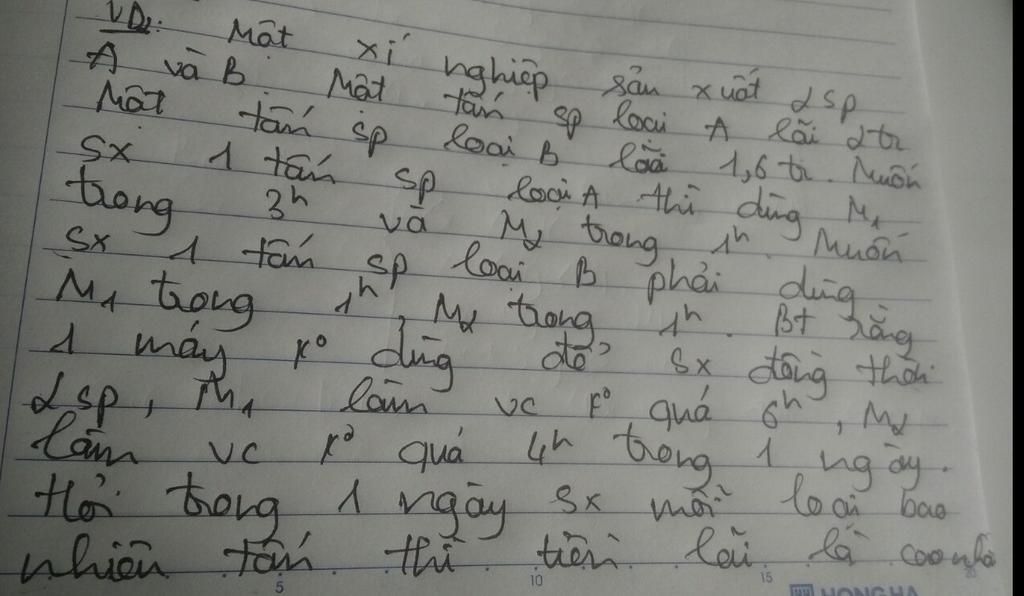 VD2. Một xí nghiệp sản xuất 2sp
A và B. Một tấn sp loại A lãi 2tr
Một tấn sp loại B lãi 1,6 tr. Muốn
sx 1 tấn sp loại A thì dùng M1
trong 3h và M2 trong 1h. Muốn
sx 1 tấn sp loại B phải dùng
M1 trong 1h, M2 trong 1h. Bt rằng
1 máy ko dùng để sx đồng thời
2sp, M1 làm vc ko quá 6h, M2
làm vc ko quá 4h trong 1 ngày.
Hỏi trong 1 ngày sx mỗi loại bao
nhiêu tấn thì tiền lãi là cao nhất
5 10 15 20
HONG HA